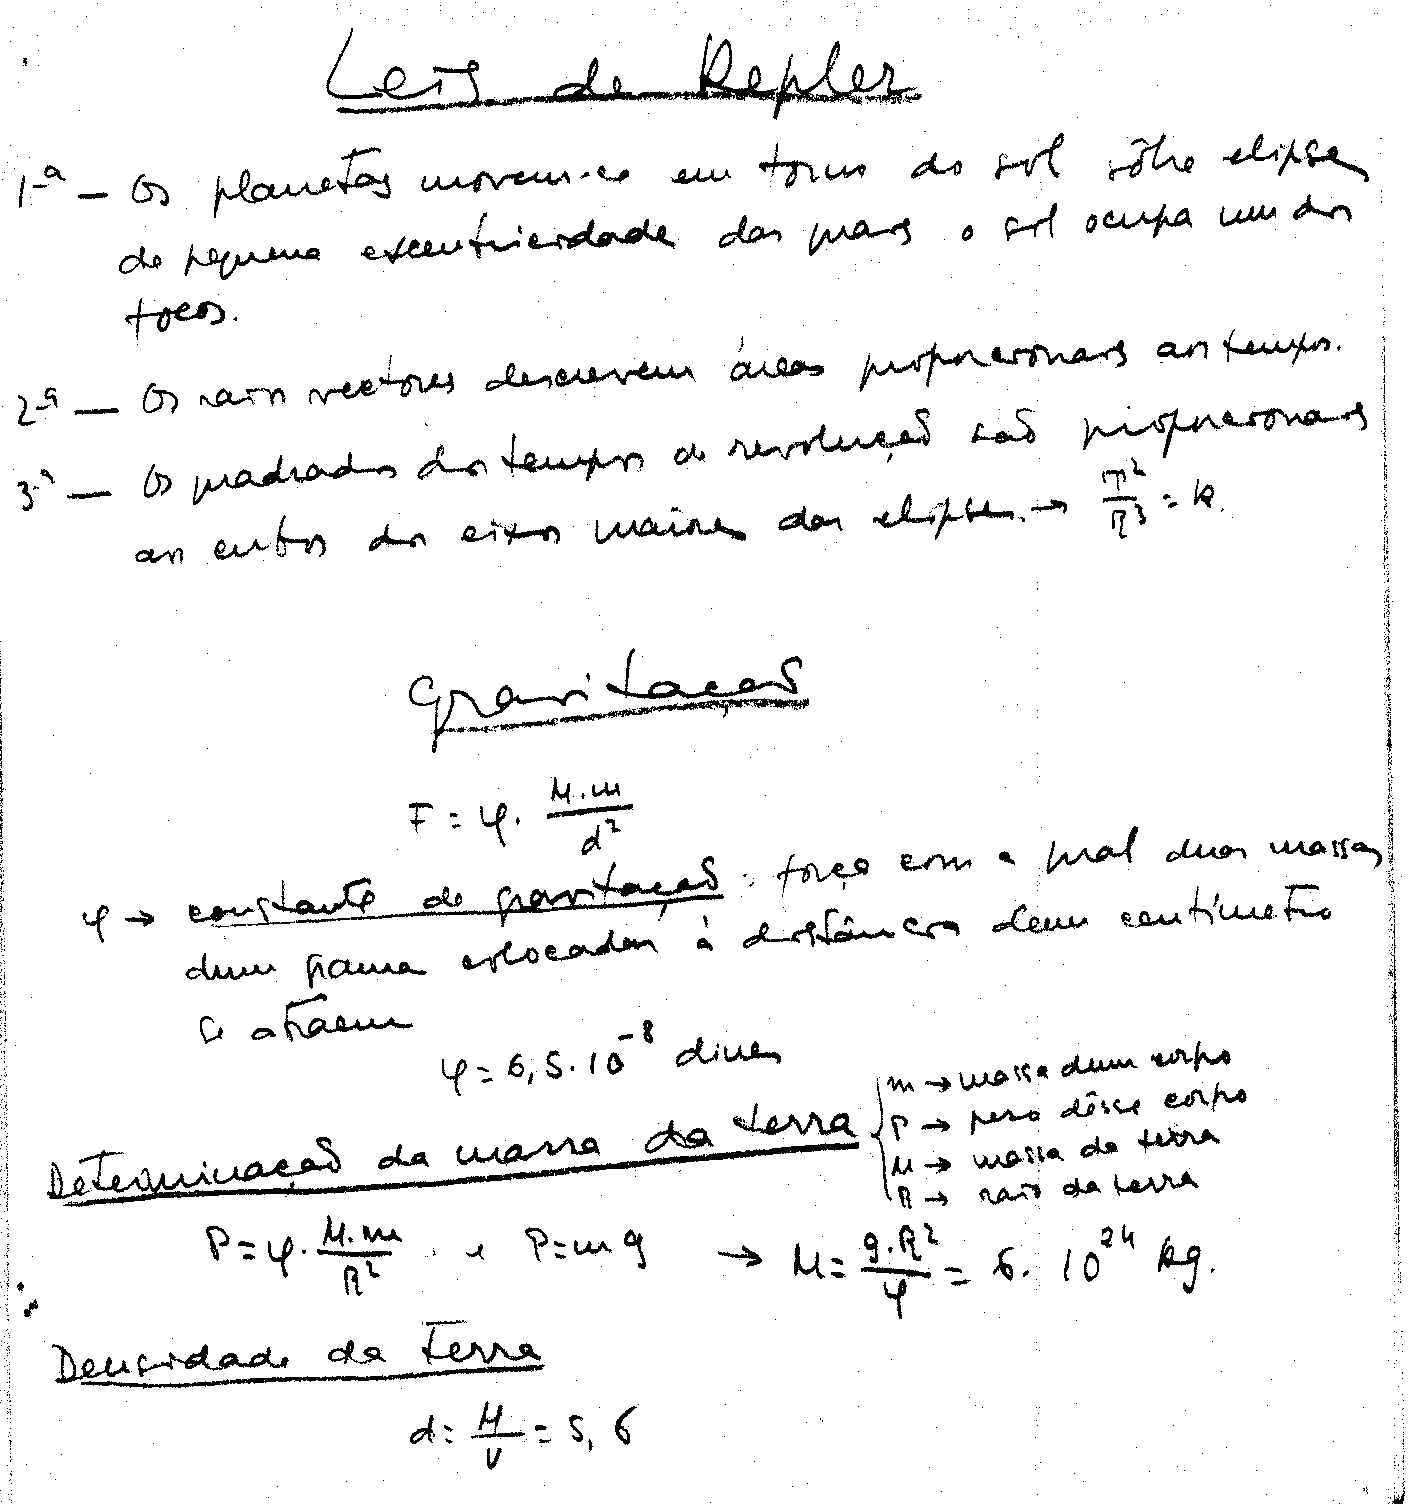 Leis de Kepler
1ª — Os planetas movem-se em tôrno do sol sôbre elipses
de pequena excentricidade das quais o sol ocupa um dos
focos.
2ª — Os raios vectores descrevem áreas proporcionais aos tempos.
3ª — Os quadrados dos tempos de revolução são proporcionais
aos cubos dos eixos maiores das elipses. → T²/R³ = k.
Gravitação
F = φ. M.m/d²
φ → constante de gravitação: força com a qual duas massas
dum grama colocadas à distância dum centímetro
se atraem
φ = 6,5.10⁻⁸ dines
Determinação da massa da terra
m → massa dum corpo
P → peso dêsse corpo
M → massa da terra
R → raio da terra
P = φ. M.m/R² e P = mg → M = g.R²/φ = 6. 10²⁴ kg.
Densidade da terra
d = M/V = 5,6